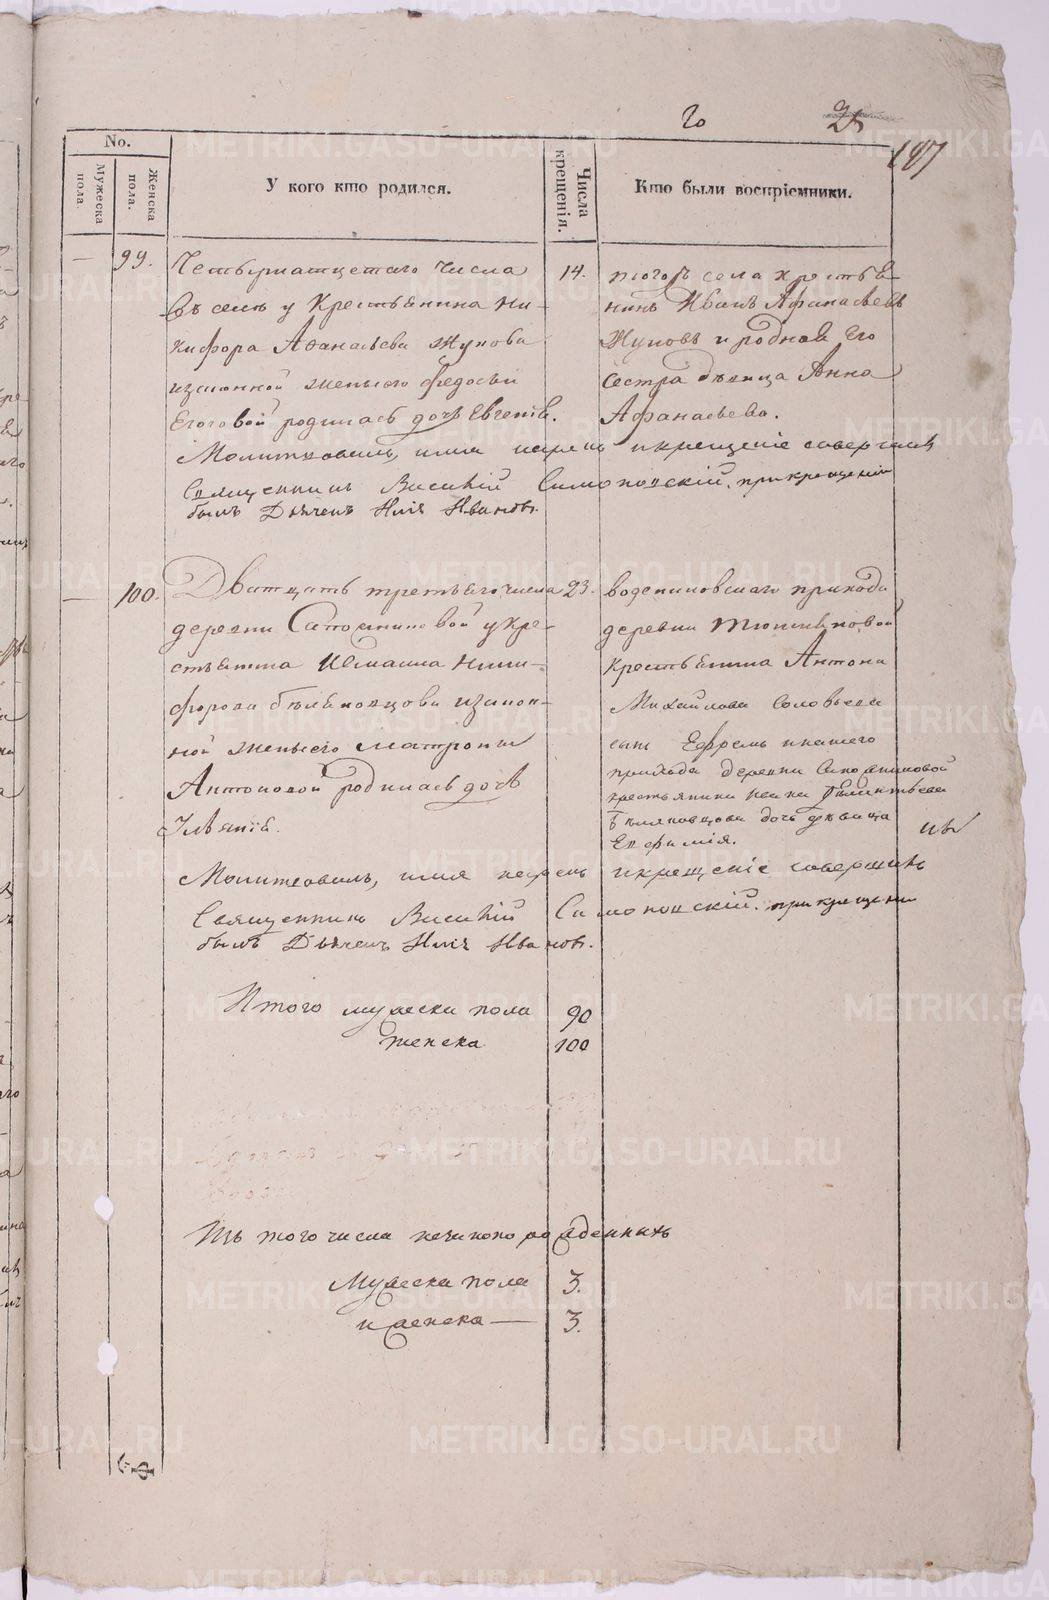 187
No.
Мужеска пола.
Женска пола.
У кого кто родился.
Числа крещенія.
Кто были воспріемники.
99. Четырнатцетаго числа
Въ селѣ у Крестьянина Ни-
кифора Афанасьева Жукова
изаконной жены его Федосьи
Егоровой родилась дочь Евгенія.
14.
тогожъ села крестья-
нинъ Иванъ Афанасьевъ
Жуковъ и родная Его
сестра дѣвица Анна
Афанасьева.
Молитвовалъ, имя нарекъ и крещеніе совершилъ
Священникъ Василій Симоновскій. при крещеніи
былъ Дьячекъ Илія Ивановъ.
100. Дватцать третьяго числа
деревни у кре-
стьянина Ники-
форова изакон-
ной жены его Матроны
Антоновой родилась дочь
23.
прихода
деревни
крестьянина Антона
Михайлова Соловьева
сынъ Ефремъ инашего
прихода деревни
крестьянина
дочь дѣвица
Евфимія.
Молитвовалъ, имя нарекъ и крещеніе совершилъ
Священникъ Василій Симоновскій. при крещении
былъ Дьячекъ Илія Ивановъ.
Итого мужеска пола 90
женска 100
Изъ того числа незаконорожденныхъ
Мужеска пола 3.
и женска — 3.
METRIKI.GASO-URAL.RU